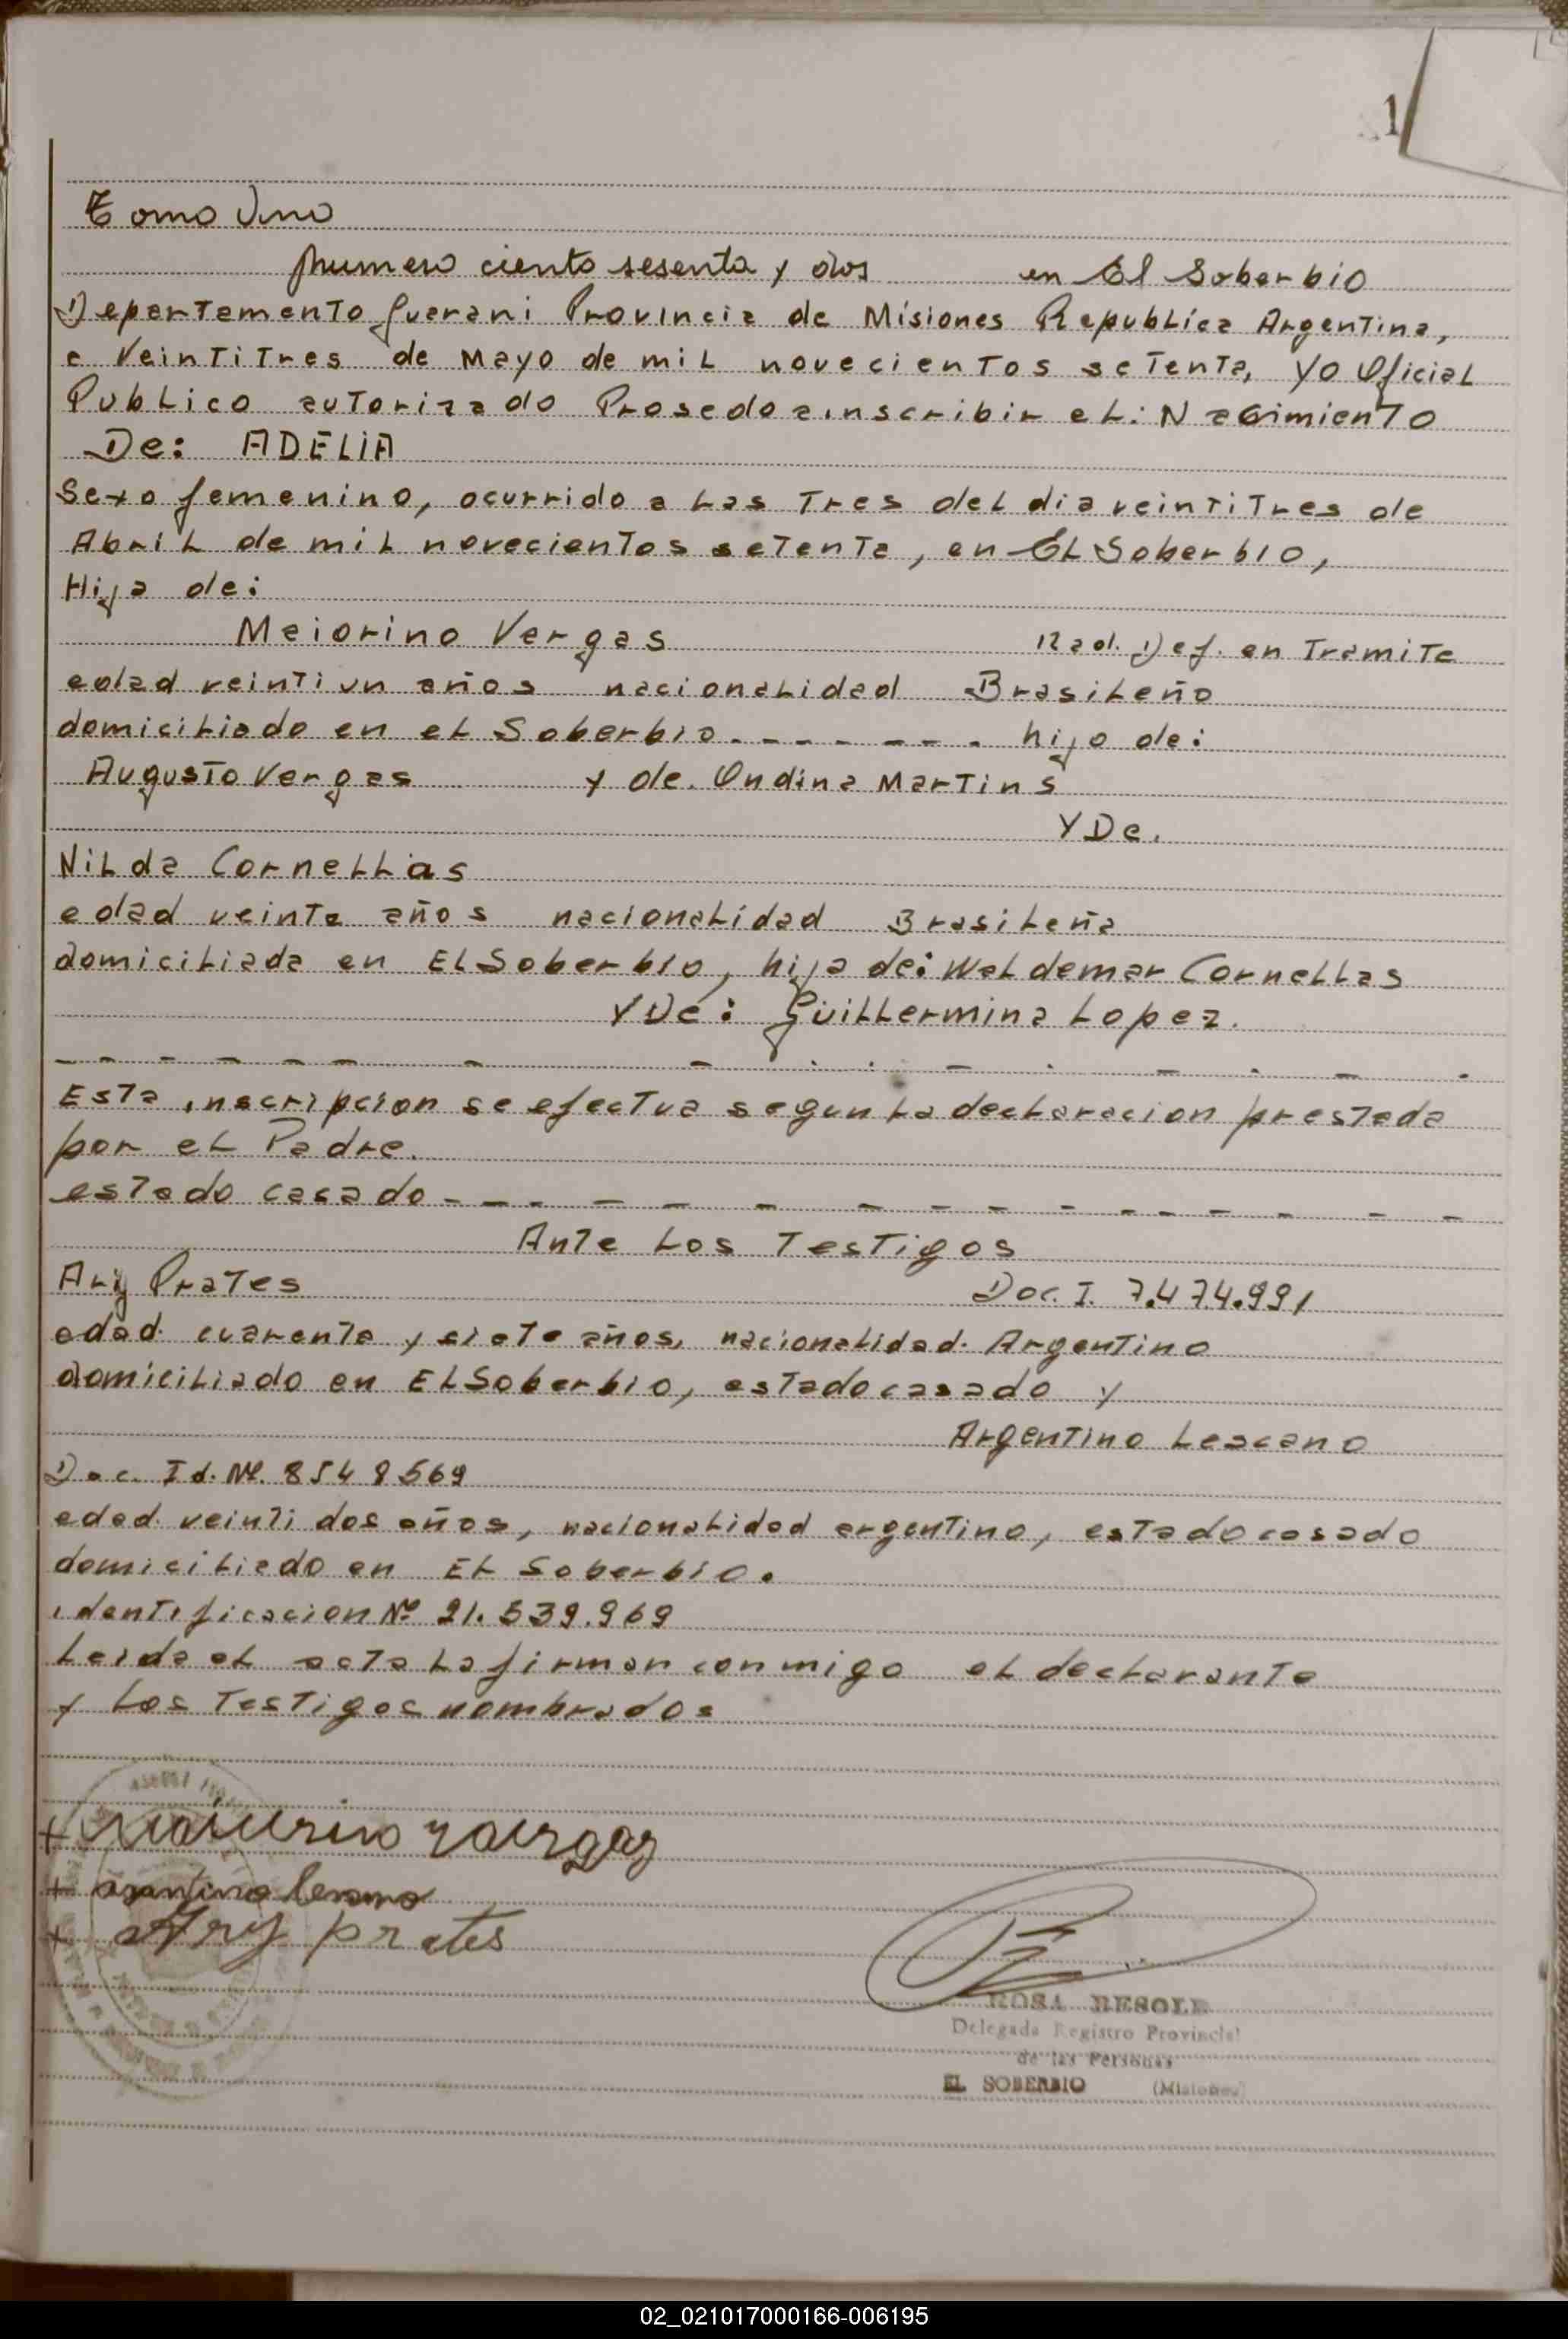 1
Tomo Uno
Numero ciento sesenta y dos en El Soberbio
Departamento Guarani Provincia de Misiones Republica Argentina,
a Veintitres de Mayo de mil novecientos setenta, yo Oficial
Publico autorizado Prosedo a inscribir el: Nacimiento
De: ADELIA
Sexo femenino, ocurrido a las Tres del dia veintitres de
Abril de mil novecientos setenta, en El Soberbio,
Hija de:
Maiorino Vargas Rad. Def. en Tramite
edad veintiun años nacionalidad Brasileño
domiciliado en el Soberbio. - - - - - - . hijo de:
Augusto Vargas y de. Ondina Martins
Y De.
Nilda Cornellias
edad veinte años nacionalidad Brasileña
domiciliada en El Soberbio, hija de: Waldemar Cornellas
Y De: Guillermina Lopez.
Esta inscripcion se efectua segun la declaracion prestada
por el Padre.
estado casado - - - - - - - - - - - - - - - -
Ante Los Testigos
Ary Prates Doc. I. 7.474.991
edad. cuarenta y siete años, nacionalidad. Argentino
domiciliado en El Soberbio, estado casado y
Argentino Lescano
Doc. Id. Nº. 8548569
edad. veinti dos años, nacionalidad argentino, estado casado
domiciliado en El Soberbio.
identificacion Nº 21.539.969
Leida el acta la firman conmigo el declarante
y Los Testigos nombrados
+ vargas
+
+ Ary prates
ROSA RESOLE
Delegada Registro Provincial
de las Personas
EL SOBERBIO (Misiones)
02_021017000166-006195